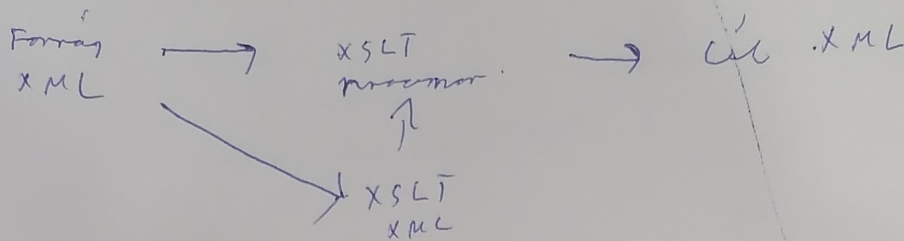 Forrás
XML
XSLT
processzor
Cél .XML
XSLT
XML